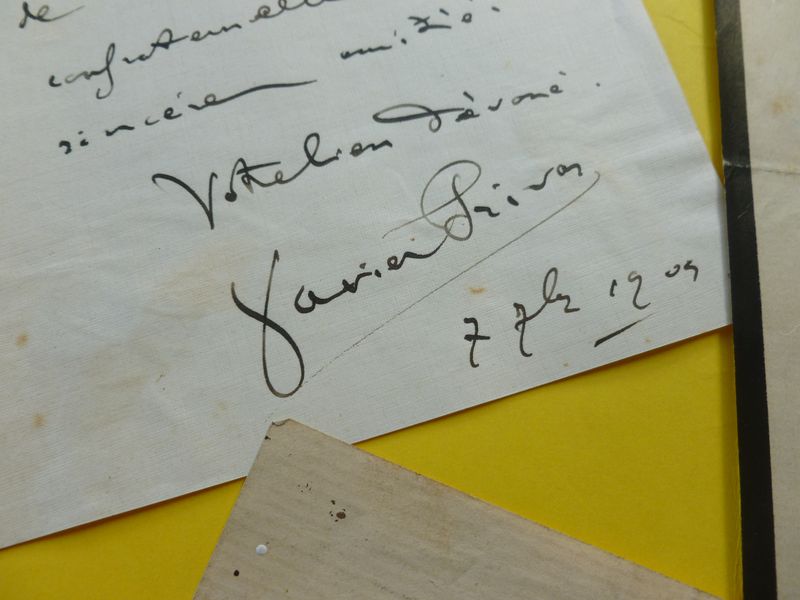 de
confraternelle
sincère amitié.
Votre bien dévoué.
Xavier Privas
7 7bre 1909